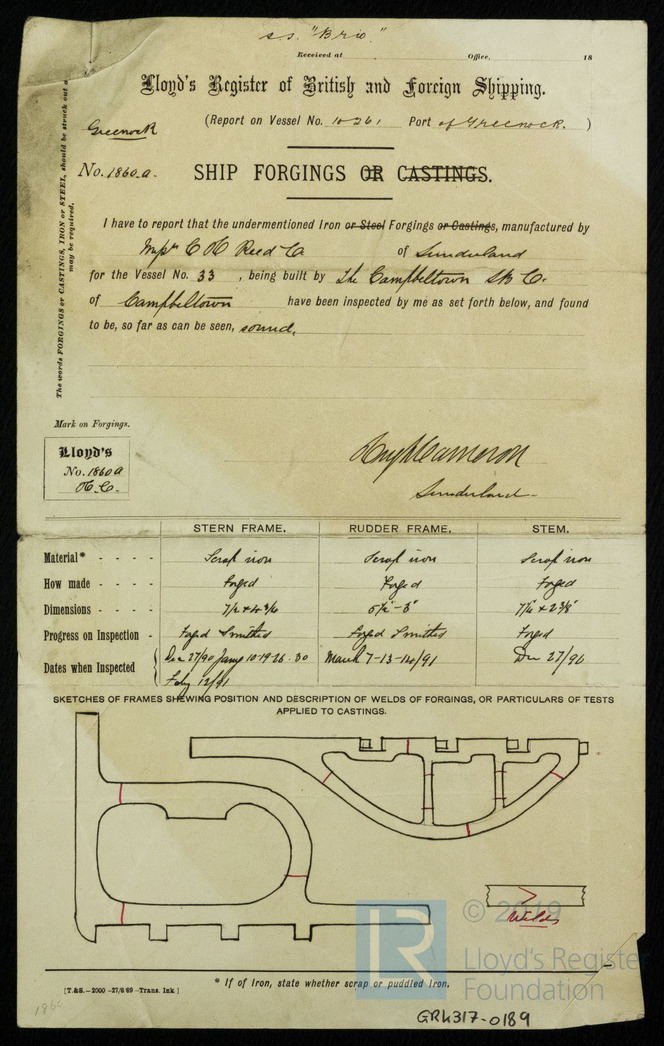 s.s. "Brio."
Received at Office, 18
Lloyd's Register of British and Foreign Shipping.
(Report on Vessel No. 10261 Port of Greenock. )
Greenock
No. 1860.a. SHIP FORGINGS OR CASTINGS.
The words FORGINGS or CASTINGS, IRON or STEEL, should be struck out as
may be required.
I have to report that the undermentioned Iron or Steel Forgings or Castings, manufactured by
Messrs C H Reed Co of Sunderland
for the Vessel No. 33 , being built by The Campbeltown SB Co.
of Campbeltown have been inspected by me as set forth below, and found
to be, so far as can be seen, sound.
Mark on Forgings.
Lloyd's
No. 1860 a
H.C.
Hugh Cameron
Sunderland
STERN FRAME. RUDDER FRAME. STEM.
Material* - - - - Scrap iron Scrap iron Scrap iron
How made - - - - Forged Forged Forged
Dimensions - - - -
Progress on Inspection - Forged Smithed Forged Smithed Forged
Dates when Inspected Dec 27/90 Jany 10-19-26-30 March 7-13-14/91 Dec 27/90
Feby 12/91
SKETCHES OF FRAMES SHEWING POSITION AND DESCRIPTION OF WELDS OF FORGINGS, OR PARTICULARS OF TESTS
APPLIED TO CASTINGS.
Welds
© 2019
LR
Lloyd's Register
Foundation
* If of Iron, state whether scrap or puddled Iron.
[T.&S.—2000 -27/8/89 -Trans. Ink]
GRK317-0189